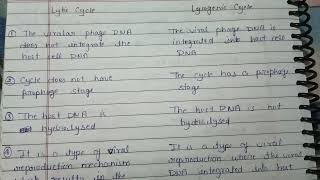 Lytic Cycle Lysogenic Cycle
① The viralar phage DNA The viral phage DNA is
does not integrate the integrated into host cell
host cell DNA DNA
② Cycle does not have The cycle has a prophage
prophage stage stage
③ The host DNA is The host DNA is not
hydrolysed hydrolysed
④ It is a type of viral It is a type of viral
reproduction mechanism reproduction where the viral
which results in the DNA integrated into host